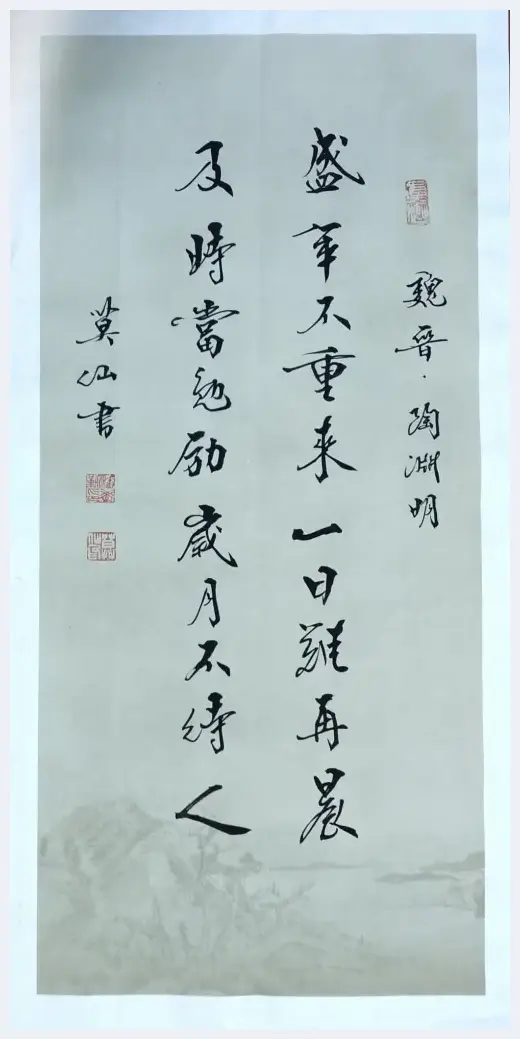 魏晋·陶淵明
盛年不重来一日難再晨
及時當勉励歳月不待人
莫仙書